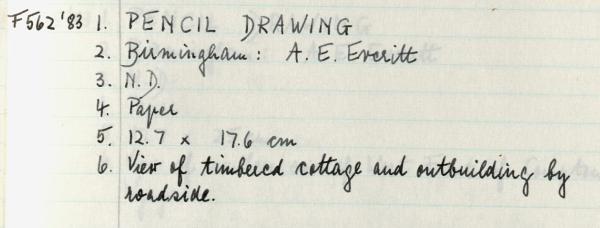 F562'83 1. PENCIL DRAWING
2. Birmingham: A. E. Everitt
3. N.D.
4. Paper
5. 12.7 x 17.6 cm
6. View of timbered cottage and outbuilding by
roadside.